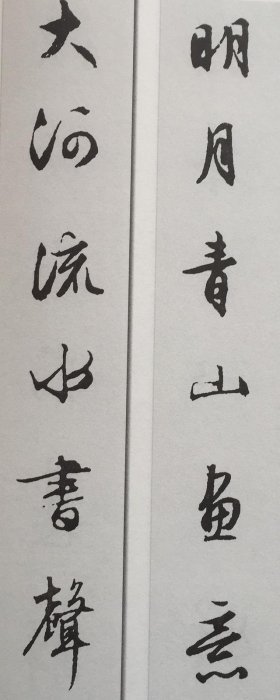 明月青山画意
大河流水書聲